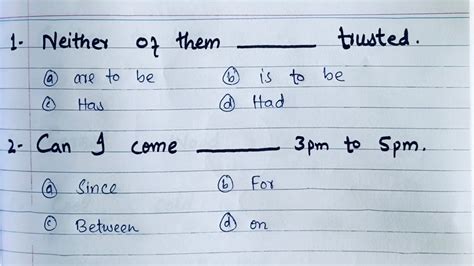 1- Neither of them ______ trusted.
(a) are to be (b) is to be
(c) Has (d) Had
2- Can I come ______ 3pm to 5pm.
(a) Since (b) For
(c) Between (d) on